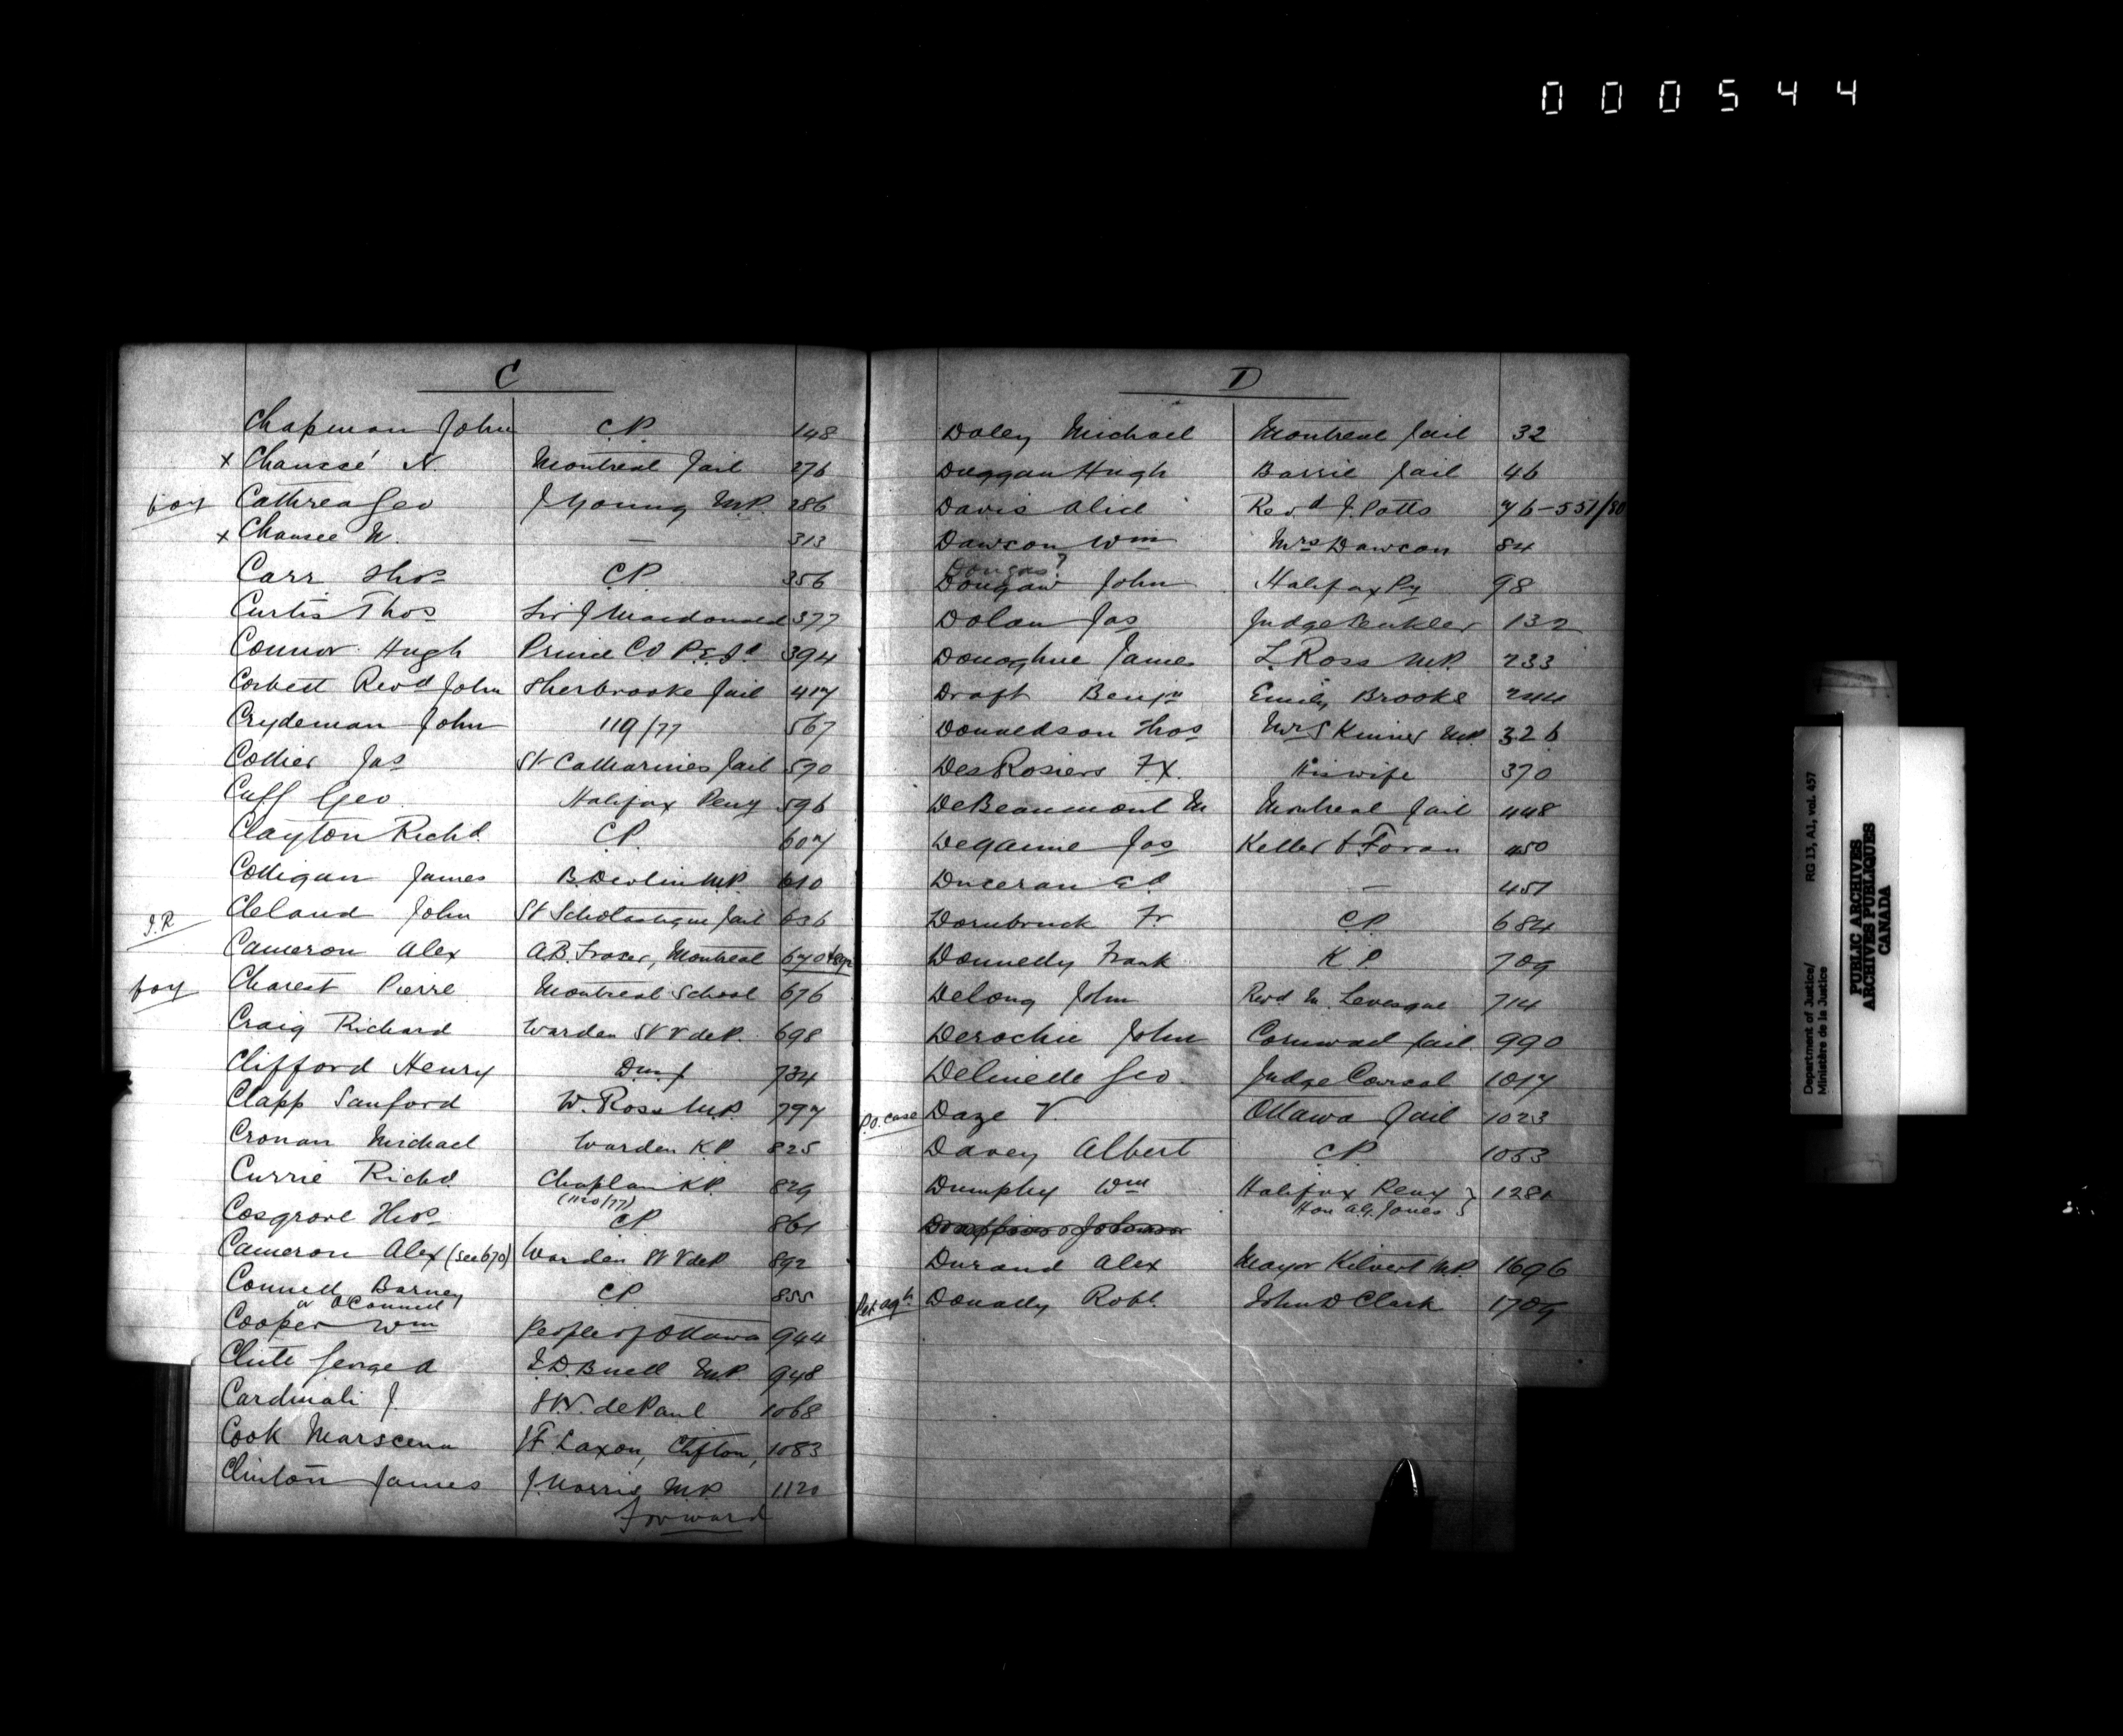 000544
C
Chapman John C.P. 148
x Chaussé N. Montreal Jail 276
for Cathrea Geo J Young M.P. 286
x Chausee N. — 313
Carr Thos CP 356
Curtis Thos Sir J Macdonald 377
Connor Hugh Prince Co P.E.Id 394
Corbett Revd John Sherbrooke Jail 417
Crydeman John 119/77 567
Collier Jas St Catharines Jail 590
Cuff Geo. Halifax Peny 596
Clayton Richd. C.P. 607
Colligan James B. Devlin M.P. 610
J.R Cleland John St Scholastique Jail 636
Cameron Alex A.B. Fraser, Montreal 670
for Charest Pierre Montreal School 676
Craig Richard Warden St V de P. 698
Clifford Henry 734
Clapp Sanford W. Ross M.P. 797
Cronan Michael Warden K.P 825
Currie Richd. Chaplain K.P. 829
(1120/77)
Cosgrove Thos CP 861
Cameron Alex (See 670) Warden St V de P 892
Connell Barney CP 855
or O'Connell
Cooper Wm People of Ottawa 944
Clute George A J.D. Buell M.P. 948
Cardinali J. St V. de Paul 1068
Cook Marscena JF Saxon, Clifton, 1083
Clinton James J. Morris M.P. 1120
Forward
D
Daley Michael Montreal Jail 32
Duggan Hugh Barrie Jail 46
Davis Alice Revd J. Potts 76-551/80
Dawson Wm Mrs Dawson 84
Dougas?
Dougaw John Halifax Py 98
Dolan Jas Judge 132
Donoghue James L. Ross M.P. 233
Draft Benjn Emily Brooks 244
Donaldson Thos Mrs Skinner M.P. 326
DesRosiers F.X. His wife 370
DeBeaumont M Montreal Jail 448
Deganne Jos Keller & Foran 450
Duceran Ed — 451
Dornbruck Fr C.P. 684
Donnelly Frank K.P. 709
Delong John Revd M. Levesque 714
Derochie John Cornwall Jail 990
Delinelle Geo. Judge Coursol 1017
P.O. case Daze V. Ottawa Jail 1023
Davey Albert C.P. 1053
Dumphy Wm Halifax Peny } 1281
Hon A.G. Jones }
Durand Alex Mayor Kilvert M.P. 1696
Donally Robt. John D Clark 1709
Department of Justice/ RG 13, A1, vol. 457
Ministère de la Justice
PUBLIC ARCHIVES
ARCHIVES PUBLIQUES
CANADA